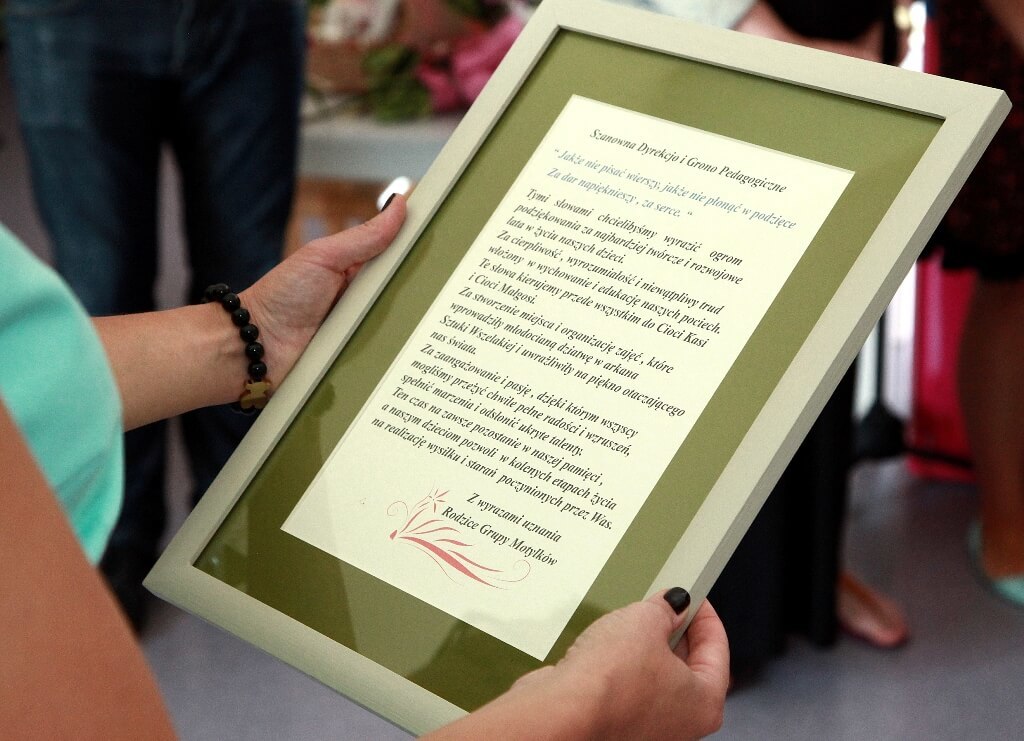 Szanowna Dyrekcjo i Grono Pedagogiczne
" Jakże nie pisać wierszy, jakże nie płonąć w podzięce
Za dar napięknieszy , za serce. "
Tymi słowami chcielibyśmy wyrazić ogrom
podziękowania za najbardziej twórcze i rozwojowe
lata w życiu naszych dzieci.
Za cierpliwość , wyrozumiałość i niewątpliwy trud
włożony w wychowanie i edukację naszych pociech.
Te słowa kierujemy przede wszystkim do Cioci Kasi
i Cioci Małgosi.
Za stworzenie miejsca i organizację zajęć , które
wprowadziły młodocianą dziatwę w arkana
Sztuki Wszelakiej i uwrażliwiły na piękno otaczającego
nas świata.
Za zaangażowanie i pasję , dzięki którym wszyscy
mogliśmy przeżyć chwile pełne radości i wzruszeń,
spełnić marzenia i odsłonić ukryte talenty.
Ten czas na zawsze pozostanie w naszej pamięci ,
a naszym dzieciom pozwoli w kolenych etapach życia
na realizację wysiłku i starań poczynionych przez Was.
Z wyrazami uznania
Rodzice Grupy Motylków